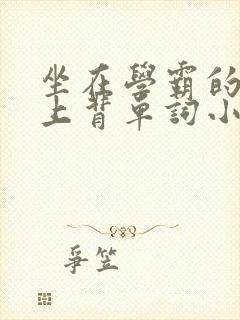 坐在學霸的
上背單詞小
爭笠